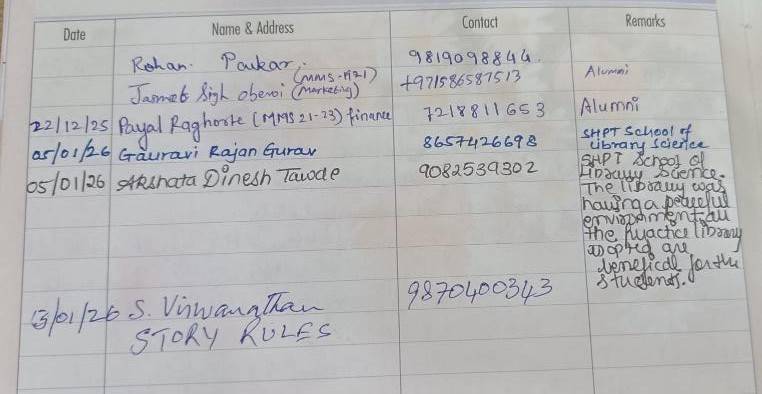 Date Name & Address Contact Remarks
Rohan. Pawkar. 9819098844.
(MMS-M21)
Jasmeet Sigh oberoi (Marketing) +971586587513 Alumni
22/12/25 Payal Raghorte (MMS 21-23) finance 7218811653 Alumni
05/01/26 Gauravi Rajan Gurav 8657426698 SHPT School of
Library Science
05/01/26 Akshata Dinesh Tawde 9082539302 SHPT School of
Library Science.
The library was
having a peaceful
environment all
the Practice library
adopted are
benefical for the
students.
13/01/26 S. Viswanathan 9870400343
STORY RULES